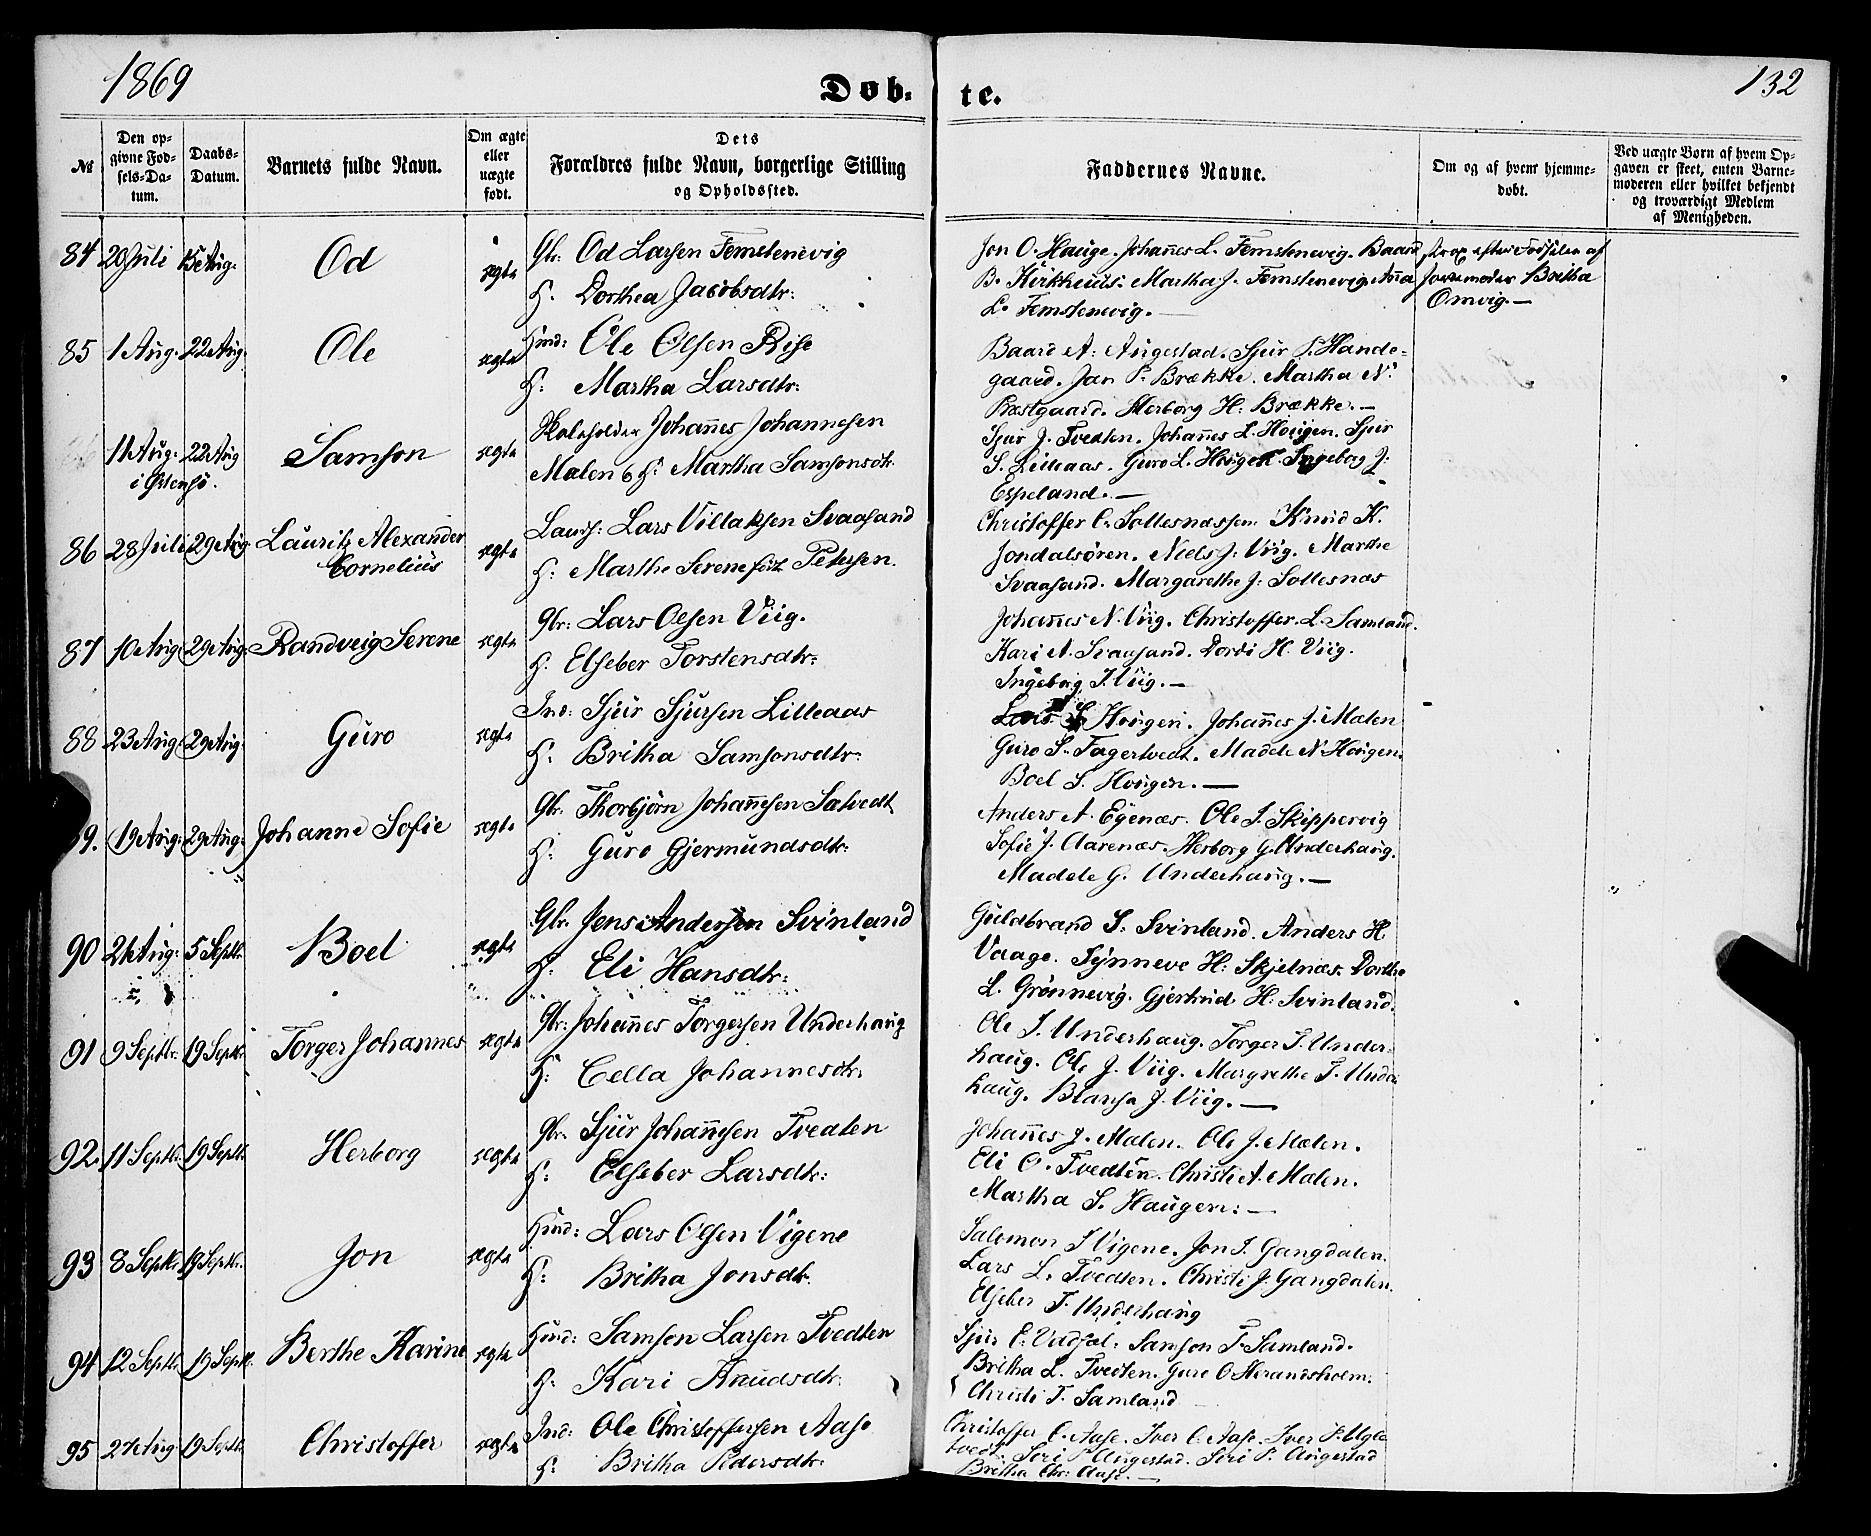 1869
Døb-
te.
132
№
Den op-
givne Fød-
sels-Da-
tum.
Daabs-
Datum.
Barnets fulde Navn.
Om ægte
eller
uægte
født.
Dets
Forældres fulde Navn, borgerlige Stilling
og Opholdssted.
Faddernes Navne.
Om og af hvem hjemme-
døbt.
Ved uægte Børn af hvem Op-
gaven er skeet, enten Barne-
moderen eller hvilket bekjendt
og troværdigt Medlem
af Menigheden.
84 20 Juli 15 Aug. Od ægte Gbr: Od Larsen Femstenevig
H: Dorthea Jacobsdtr:
Jon O. Hauge. Johañes L. Femstenevig. Baard
B. Kirkhuus. Martha J. Femstenevig. Aña
L. Femstenevig. —
strax efter Fødselen af
Jordemoder Britha
Omvig. —
85 1 Aug. 22 Aug. Ole ægte Huusd: Ole Olsen Rise
H: Martha Larsdtr:
Baard A. Augestad. Sjur P. Hande-
gaard. Jan P. Brække. Martha N.
Præstgaard. Herborg H. Brække. —
11 Aug. 22 Aug Samson ægte Skoleholder Johañes Johannesen
i Østensø.
Mælen & H: Martha Samsonsdtr.
Sjur J. Tvedten. Johañes L. Hougen. Sjur
S. Lilleaas. Guro L. Hougen. Ingeborg J.
Espeland. —
86 28 Juli 29 Aug. Lauritz Alexander
Cornelius ægte Landh: Lars Villaksen Svaasand
H: Marthe Serene født Petersen.
Christoffer C. Sollesnæssen. Knud K.
Jondalsøren. Niels J. Viig. Marthe
Svaasand. Margarethe J. Sollesnæs
87 10 Aug. 29 Aug. Randveig Serene ægte Gbr: Lars Olsen Viig.
H. Elseber Torstensdtr:
Johañes N. Viig. Christoffer L. Samland.
Kari N. Svaasand. Dordi H. Viig.
Ingeborg T. Viig. —
88 23 Aug. 29 Aug. Guro ægte Ind: Sjur Sjursen Lilleaas
H: Britha Samsonsdtr:
Lars S. Hougen. Johañes J. Mælen
Guro S. Fagertvedt. Madele N. Hougen.
Boel S. Hougen. —
89. 19 Aug. 29 Aug. Johanne Sofie ægte Gbr. Thorbjørn Johañesen Sætvedt
H: Guro Gjermundsdtr:
Anders A. Egenæs. Ole J. Skippervig
Sofie J. Aarenæs. Herborg G. Underhaug.
Madele G. Underhaug. —
90 21 Aug. 5 Septbr. Boel ægte Gbr. Jens Andersen Svinland
H: Eli Hansdtr:
Guldbrand S. Svinland. Anders H.
Vaage. Synneve H. Skjelnæs. Dorthe
L. Grønnevig. Gjertrud H. Svinland.
91 9 Septbr. 19 Septbr. Torger Johannes ægte Gbr: Johañes Torgersen Underhaug
H: Cella Johannesdtr:
Ole J. Underhaug. Torger T. Under-
haug. Ole J. Viig. Margrethe T. Under
haug. Blansa J. Viig. —
92. 11 Septbr. 19 Septbr. Herborg ægte Gbr. Sjur Johañesen Tvedten
H: Elseber Larsdtr:
Johañes J. Mælen. Ole J. Mælen.
Eli O. Tvedten. Christi A. Mælen.
Martha S. Haugen: —
93 8 Septbr. 19 Septbr. Jon ægte Huusd: Lars Olsen Vigene
H: Britha Jonsdtr:
Salomon J. Vigene. Jon J. Gangdalen.
Lars L. Tvedten. Christi J. Gangdalen.
Elseber T. Underhaug
94 12 Septbr. 19 Septbr. Berthe Karine ægte Huusd: Samson Larsen Tvedten
H: Kari Knudsdtr:
Sjur E. Vadsel. Samson T. Samland.
Britha L. Tvedten. Guro O. Herandsholm.
Christi T. Samland
95 27 Aug. 19 Septbr. Christoffer ægte Ind: Ole Christoffersen Aase
H: Britha Pedersdtr:
Christoffer C. Aase. Iver C. Aase. Iver P. Ugle
tvedt. Siri P. Augestad. Siri P. Augestad
Britha Chr: Aase. —